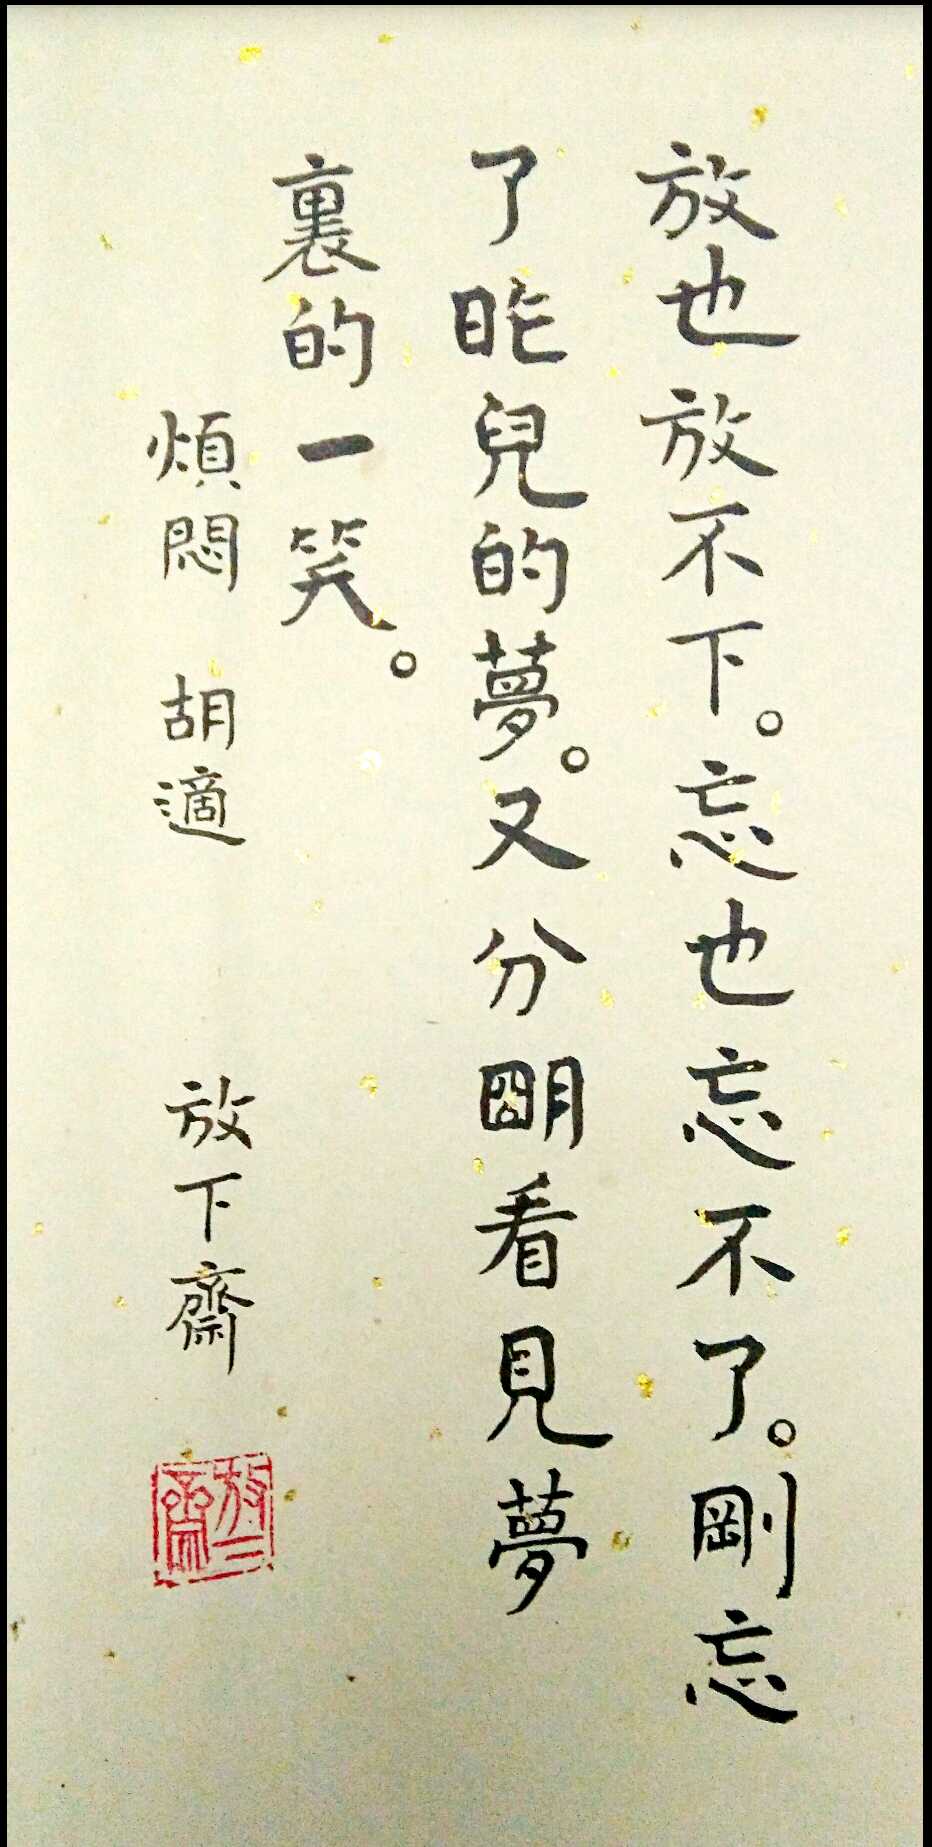 放也放不下。忘也忘不了。剛忘
了昨兒的夢。又分明看見夢
裏的一笑。
煩悶 胡適 放下齋
放下齋